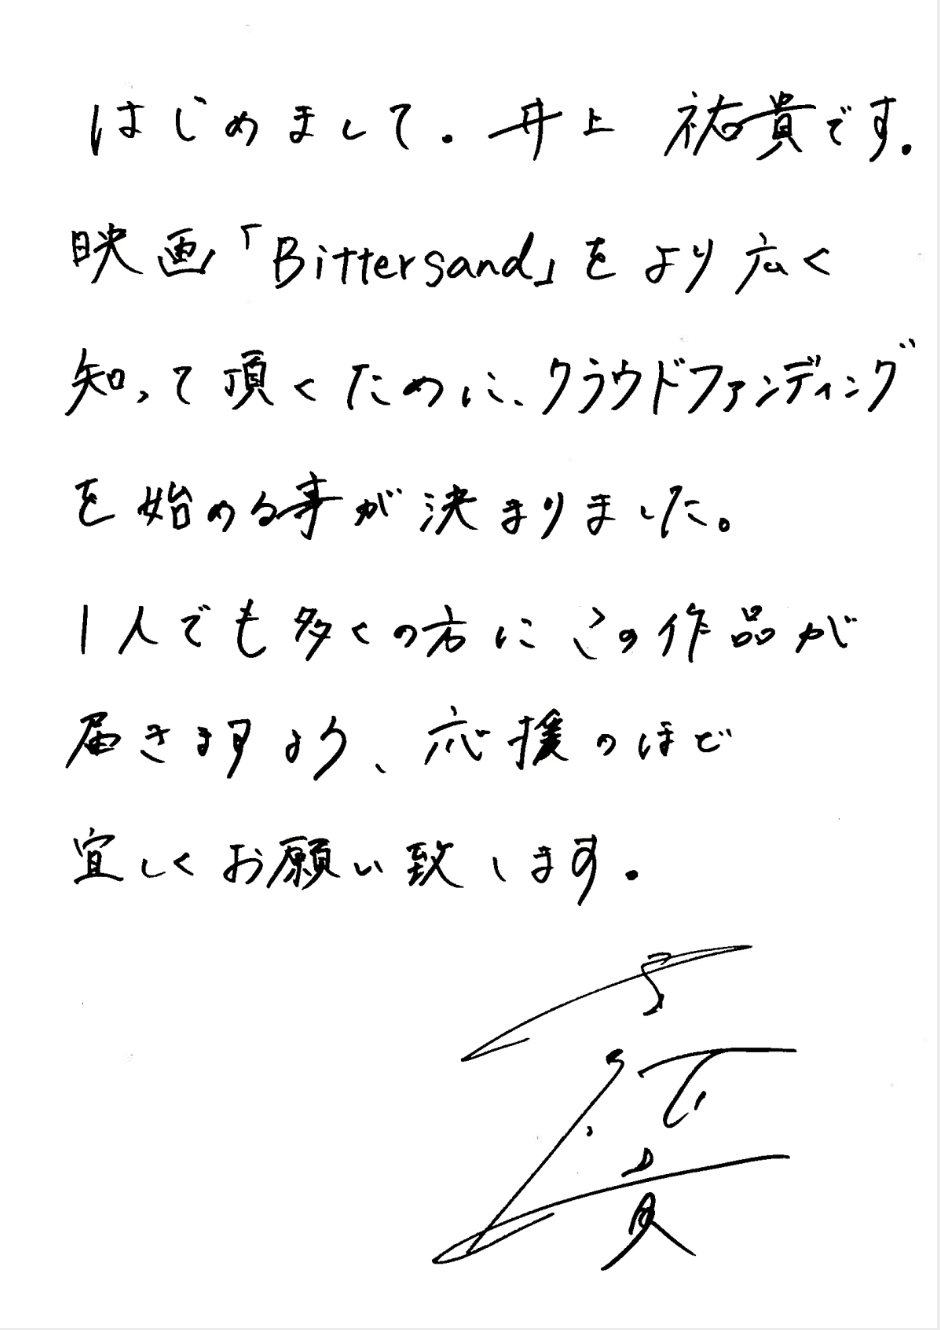 はじめまして。井上 祐貴です。
映画「Bittersand」をより広く
知って頂くために、クラウドファンディング
を始める事が決まりました。
1人でも多くの方にこの作品が
届きますよう、応援のほど
宜しくお願い致します。